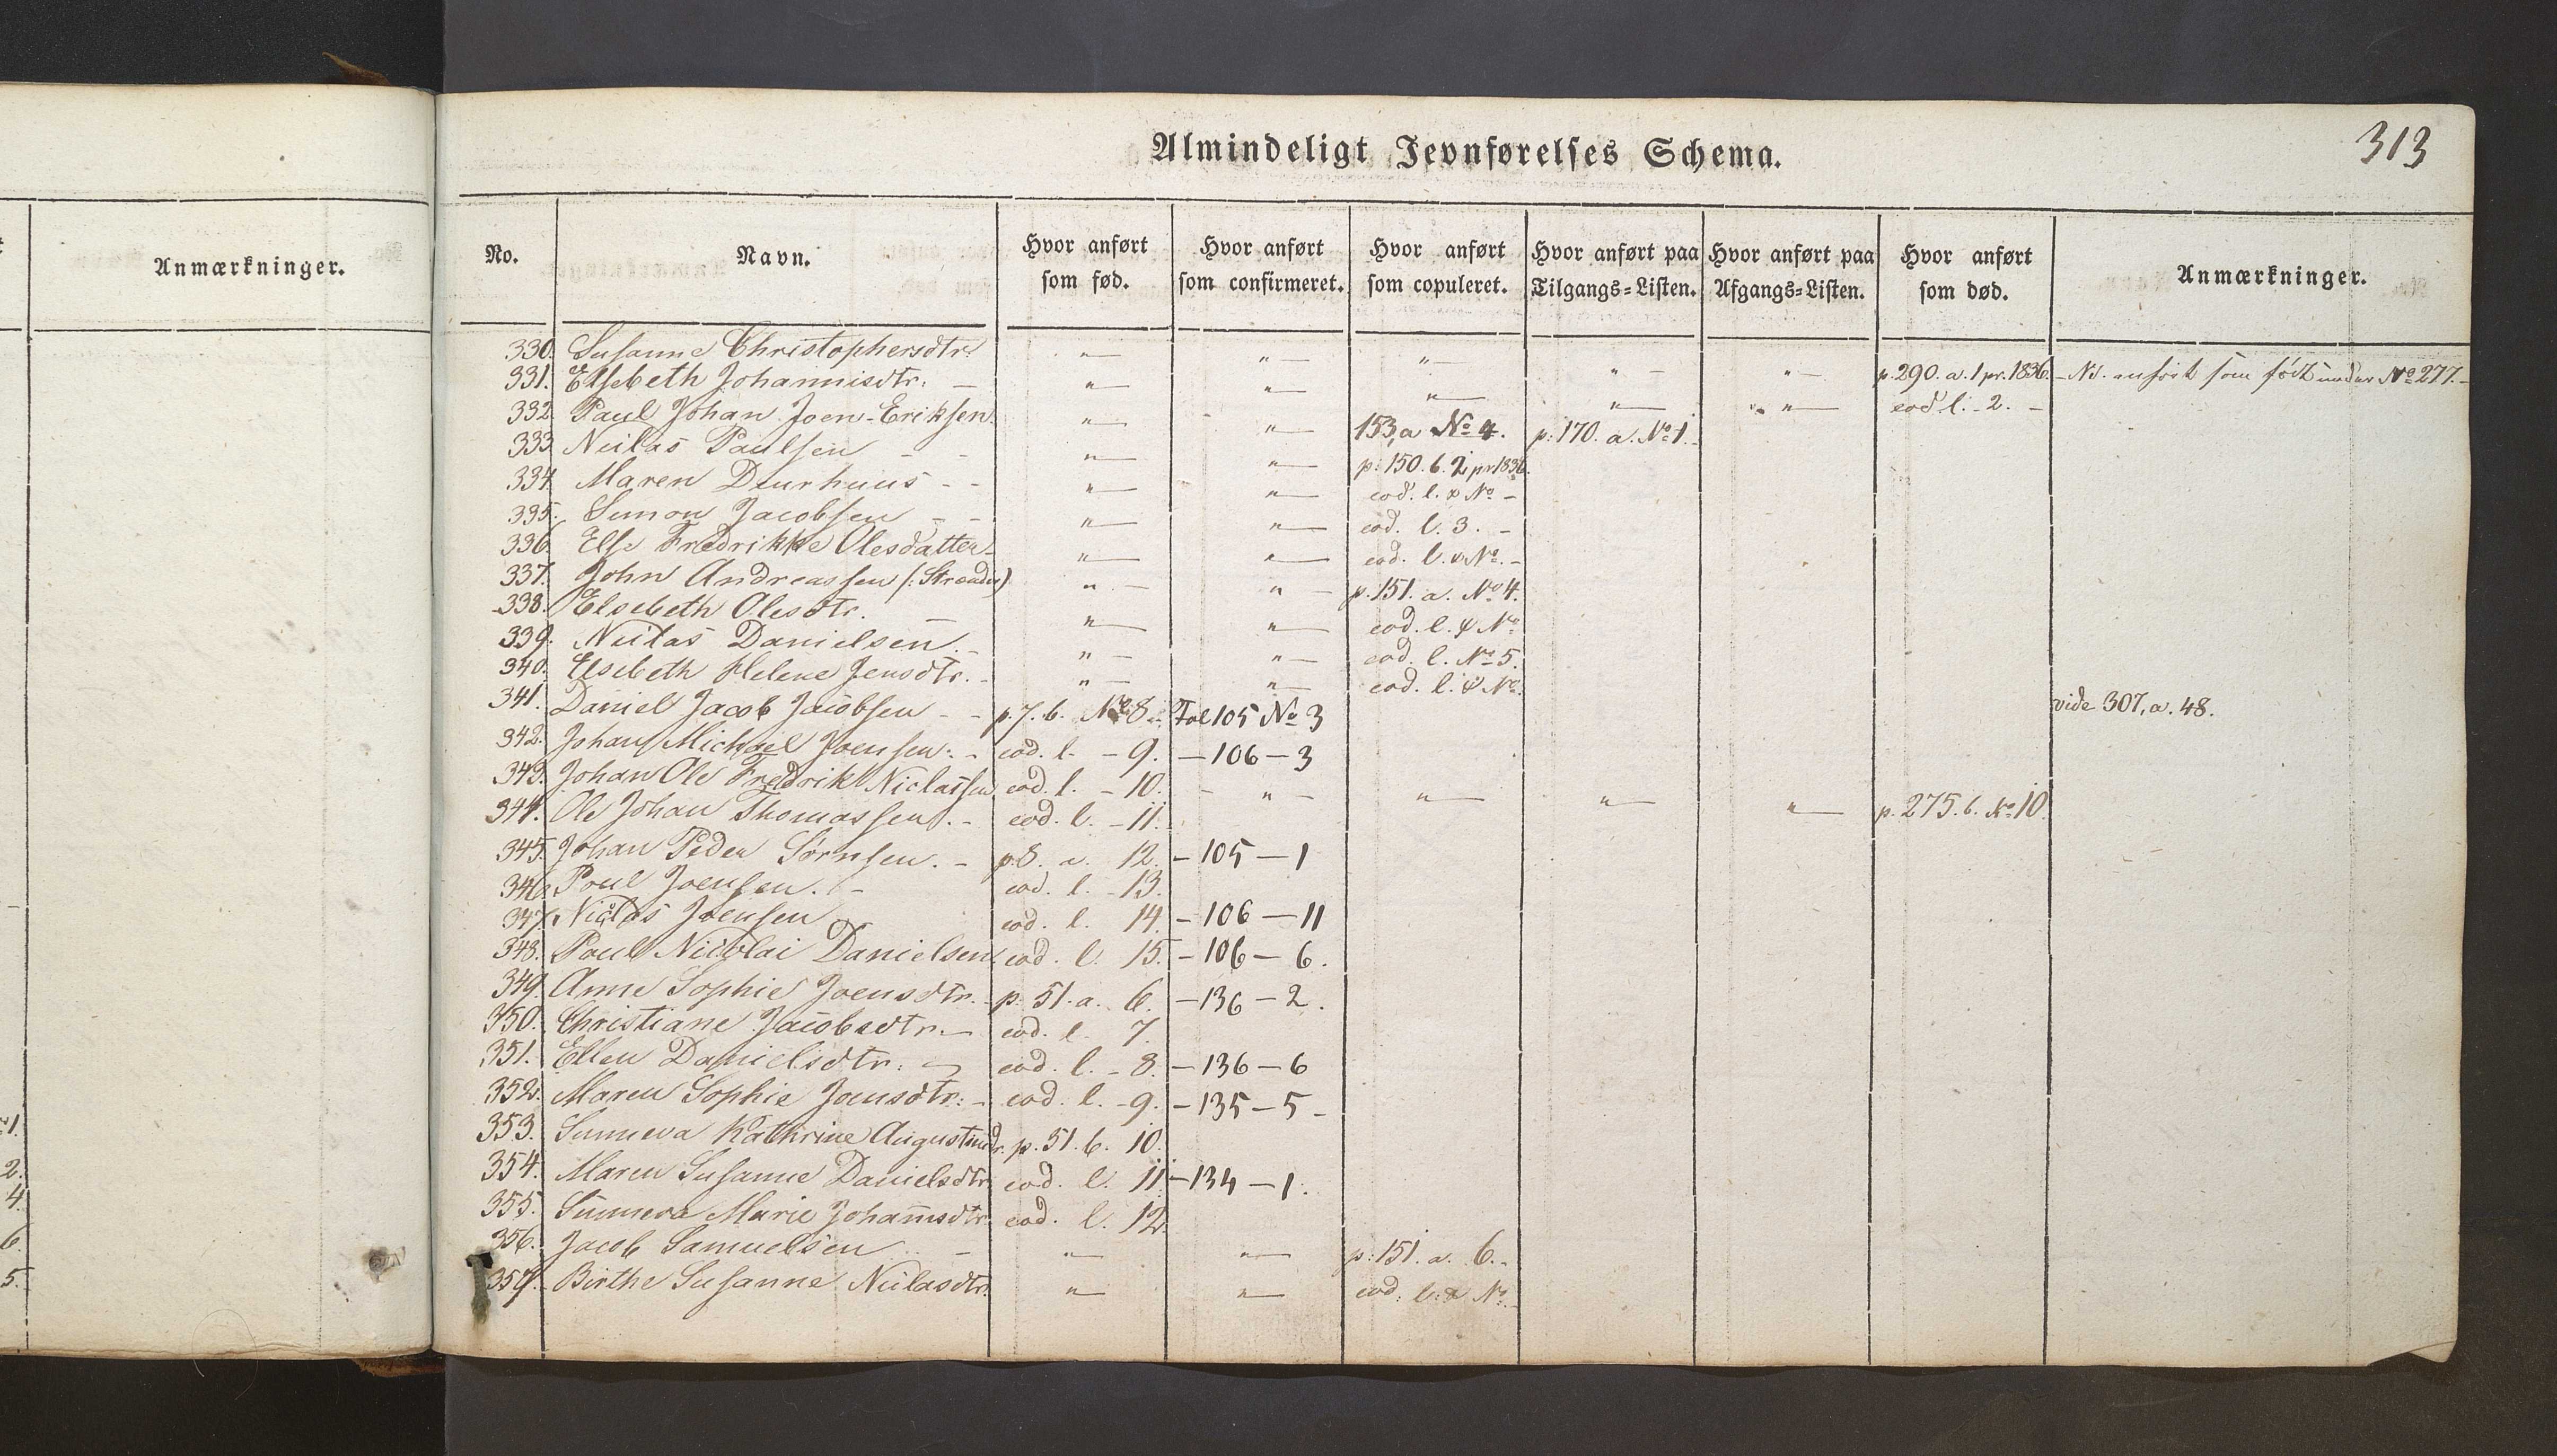 Anmærkninger.
1.
2.
4.
6.
5.
Almindeligt Jevnførelses Schema.
313
No. Navn. Hvor anført som fød. Hvor anført som confirmeret. Hvor anført som copuleret. Hvor anført paa Tilgangs=Listen. Hvor anført paa Afgangs=Listen. Hvor anført som død. Anmærkninger.
330. Susanne Christophersdtr. " — " — " — " — " — p. 290. a. 1 pr. 1836. - Nb. anført som født under No 277. -
331. Elsebeth Johannisdtr. — " — " — " — " — " — eod l. - 2. -
332. Paul Johan Joen-Eriksen. " — " — 153, a No 4. p: 170. a. No 1. -
333. Niclas Paulsen - - " — " — p: 150. b. 2, pr 1836.
334. Maren Djurhuus - - " — " — eod. l. & No -
335. Simon Jacobsen - - " — " — eod. l. 3. -
336. Else Fredrikke Olesdatter - " — " — eod. l. & No. -
337. John Andreassen (: Strender) " — " — p. 151. a. No 4.
338. Elsebeth Olesdtr. — " — " — eod. l. & No
339. Niclas Danielsen. - " — " — eod. l. No 5.
340. Elsebeth Helene Jensdtr. - " — " — eod. l. & No.
341. Daniel Jacob Jacobsen - - p. 7. b. No 8. Fol 105 No 3 vide 307, a. 48.
342. Johan Michael Joensen. - eod. l. - 9. — 106 — 3
343. Johan Ole Fredrik Niclassen eod. l. - 10. - " - " — " — " — p. 275. b. No 10.
344. Ole Johan Thomassen. - eod. l. - 11.
345. Johan Peder Sørnsen. - p. 8. a. 12. — 105 — 1
346. Poul Joensen. - eod. l. - 13.
347. Niclas Joensen eod. l. 14. — 106 — 11
348. Poul Nicolai Danielsen. eod. l. 15. — 106 — 6.
349. Anne Sophie Joensdtr. - p. 51. a. 6. — 136 — 2.
350. Christiane Jacobsdtr. — eod. l. 7.
351. Ellen Danielsdtr. — eod. l. - 8. — 136 — 6
352. Maren Sophie Joensdtr: - eod. l. - 9. — 135 — 5 -
353. Sunneva Kathrine Augustinsdr. p. 51. b. 10.
354. Maren Susanne Danielsdtr. eod. l. 11. — 134 — 1.
355. Sunneva Marie Johannisdtr. eod. l. 12.
356. Jacob Samuelsen - " — " — p: 151. a. 6. -
357. Birthe Susanne Niclasdtr. " — " — eod. l. & No. -